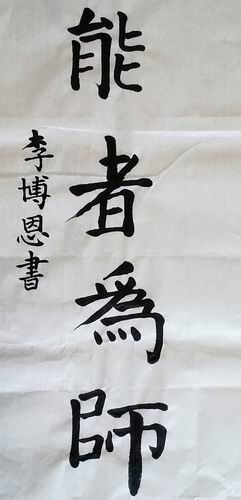 能者為師
李博恩書